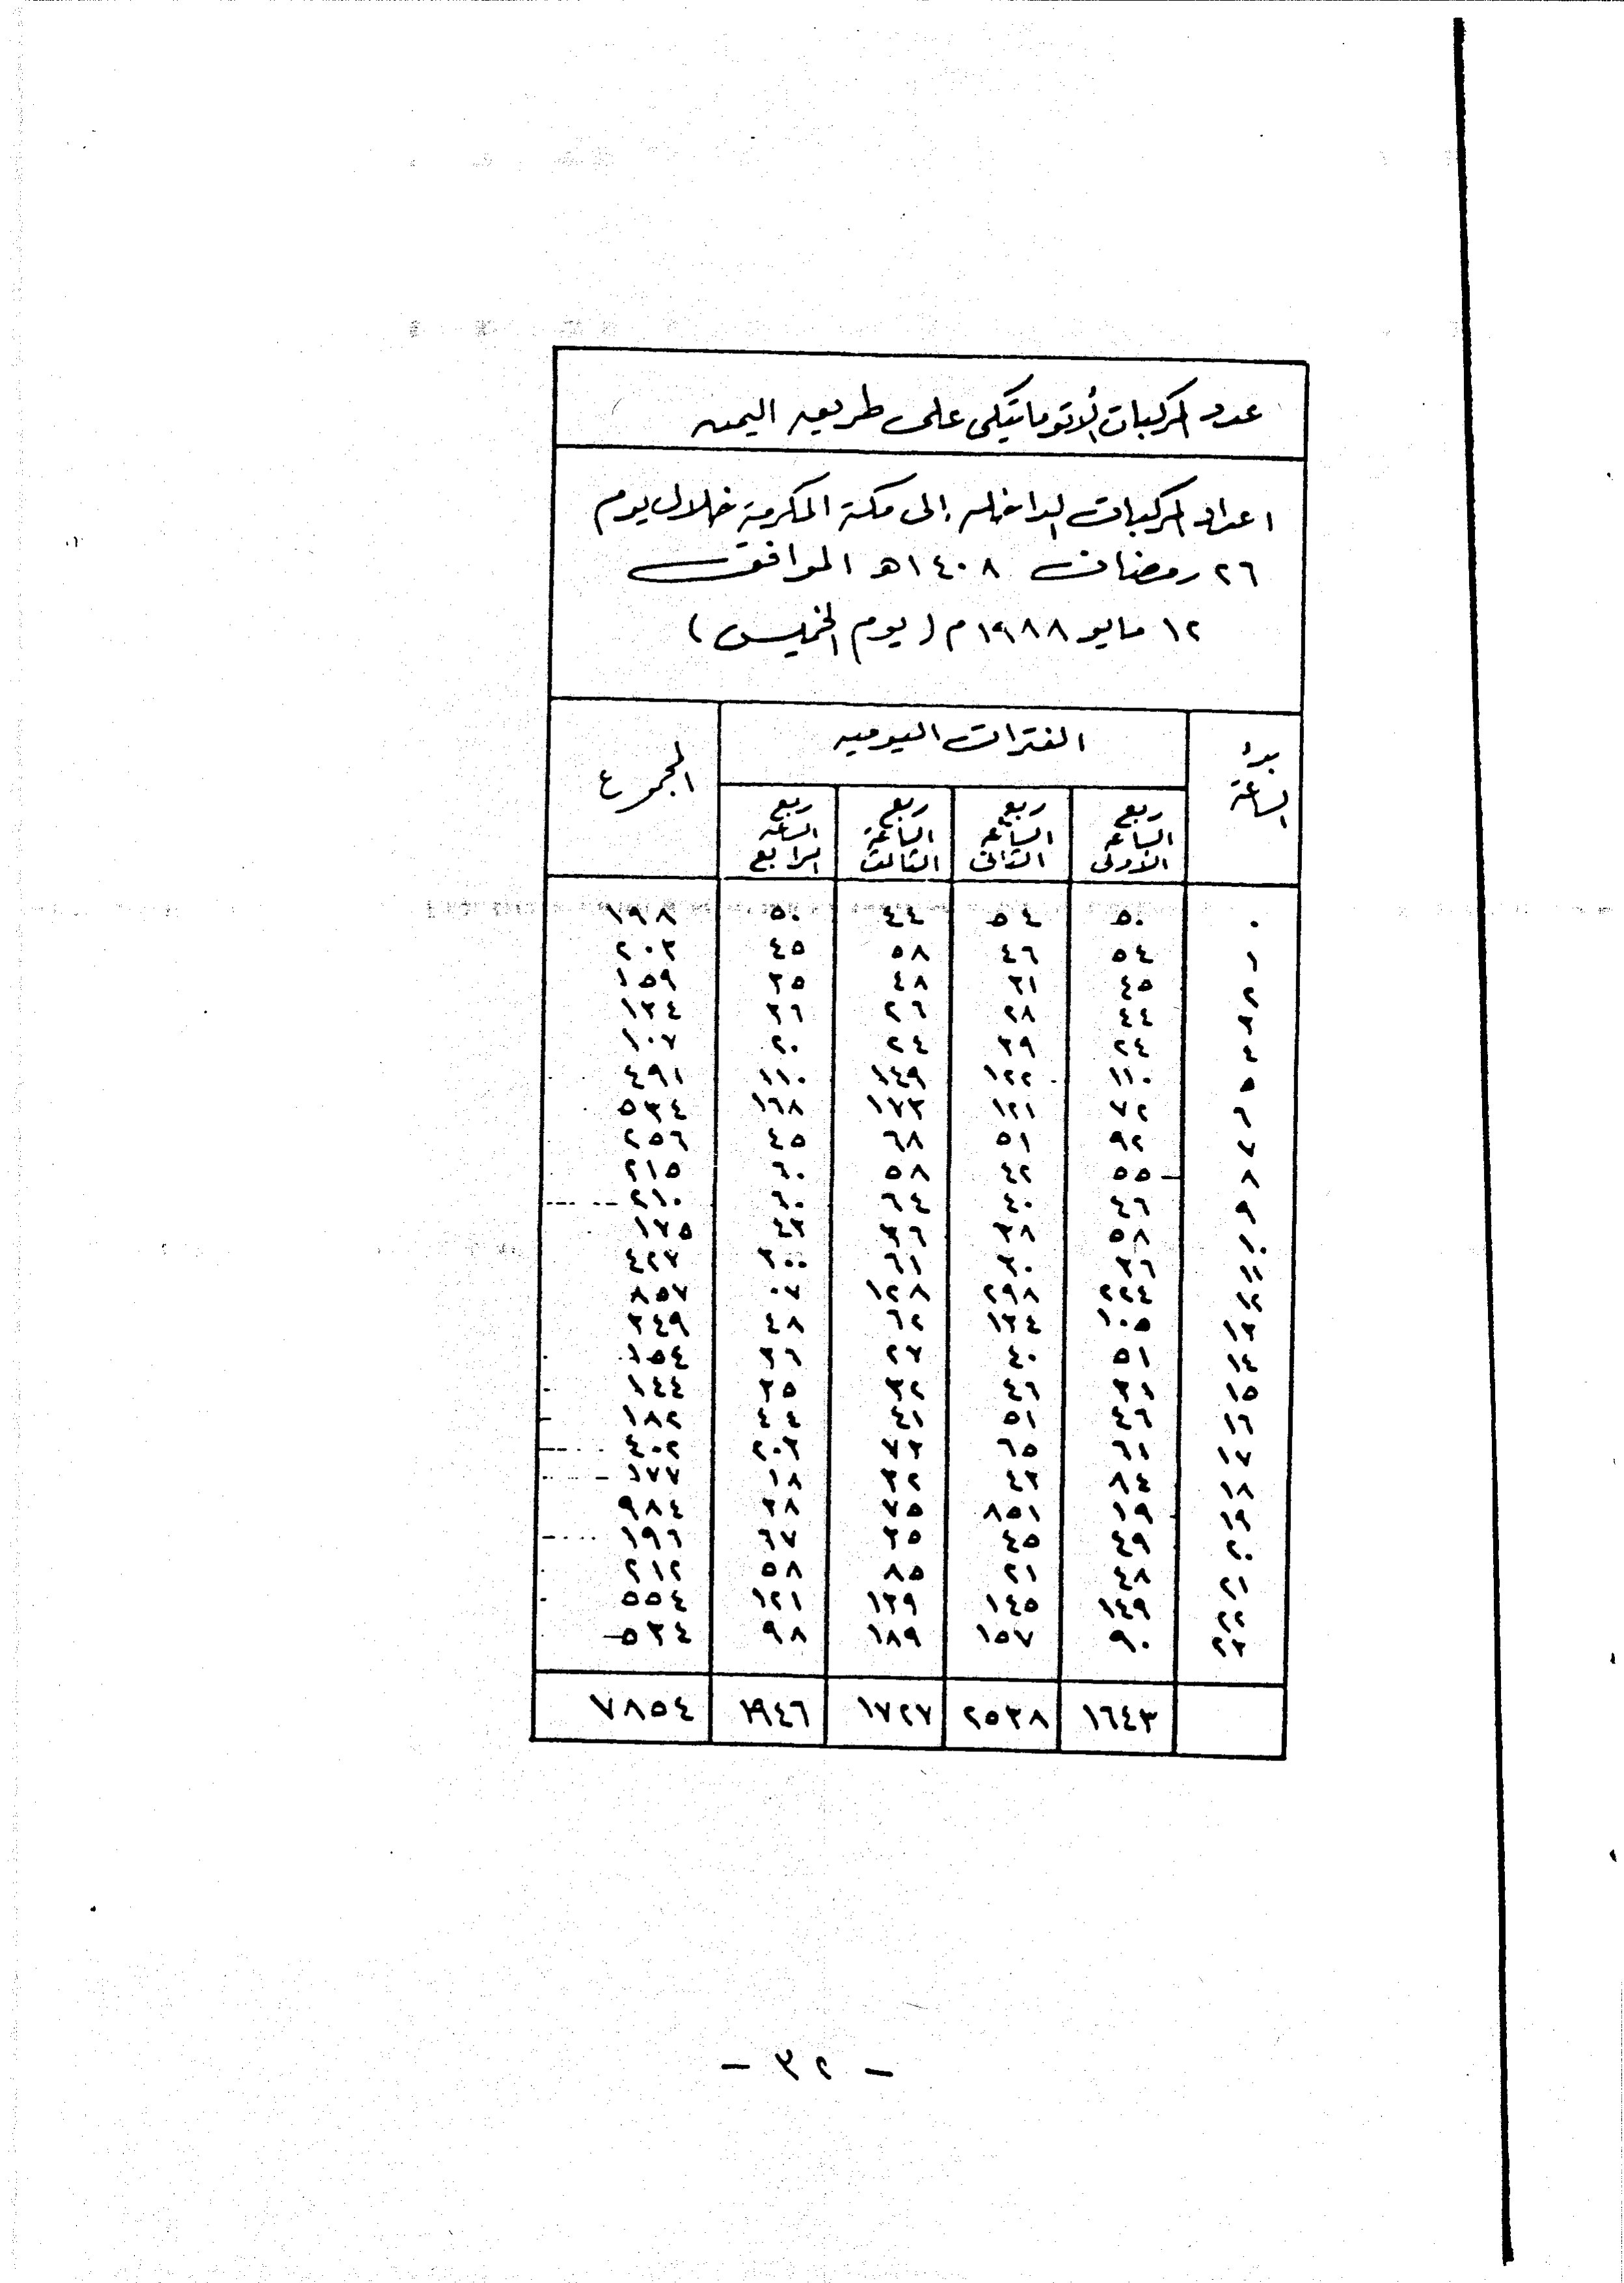 عدد المركبات الأتوماتيكى على طريق اليمن
اعداد المركبات الداخله إلى مكة المكرمة خلال يوم
٢٦ رمضان ١٤٠٨هـ الموافق
١٢ مايو ١٩٨٨م (يوم الخميس)
بدء الساعة الفترات اليومية المجموع
ربع الساعة الأولى ربع الساعة الثانى ربع الساعة الثالث ربع الساعة الرابع
٠ ٥٠ ٥٤ ٤٤ ٥٠ ١٩٨
١ ٥٤ ٤٦ ٥٨ ٤٥ ٢٠٣
٢ ٤٥ ٣١ ٤٨ ٣٥ ١٥٩
٣ ٤٤ ٢٨ ٢٦ ٣٦ ١٣٤
٤ ٢٤ ٣٩ ٢٤ ٢٠ ١٠٧
٥ ١١٠ ١٢٢ ١٤٩ ١١٠ ٤٩١
٦ ٧٢ ١٢١ ١٧٣ ١٦٨ ٥٣٤
٧ ٩٢ ٥١ ٦٨ ٤٥ ٢٥٦
٨ ٥٥ ٤٢ ٥٨ ٦٠ ٢١٥
٩ ٤٦ ٤٠ ٦٤ ٦٠ ٢١٠
١٠ ٥٨ ٣٨ ٣٦ ٤٣ ١٧٥
١١ ٣٦ ٣٠ ٦١ ٣٠٠ ٤٢٧
١٢ ٢٢٤ ٢٩٨ ١٢٨ ٠٧ ٨٥٧
١٣ ١٠٥ ١٣٤ ٦٢ ٤٨ ٣٤٩
١٤ ٥١ ٤٠ ٢٧ ٣٦ ١٥٤
١٥ ٣١ ٤٦ ٣٢ ٣٥ ١٤٤
١٦ ٤٦ ٥١ ٤١ ٤٤ ١٨٢
١٧ ٦١ ٦٥ ٧٣ ٢٠٣ ٤٠٢
١٨ ٨٤ ٤٣ ٣٢ ١٨ ١٧٧
١٩ ١٩ ٨٥١ ٧٥ ٣٨ ٩٨٤
٢٠ ٤٩ ٤٥ ٣٥ ٦٧ ١٩٦
٢١ ٤٨ ٢١ ٨٥ ٥٨ ٢١٢
٢٢ ١٤٩ ١٤٥ ١٣٩ ١٢١ ٥٥٤
٢٣ ٩٠ ١٥٧ ١٨٩ ٩٨ ٥٣٤
١٦٤٣ ٢٥�٨ ١٧٢٧ ١٩٤٦ ٧٨٥٤
- ٣٢ -